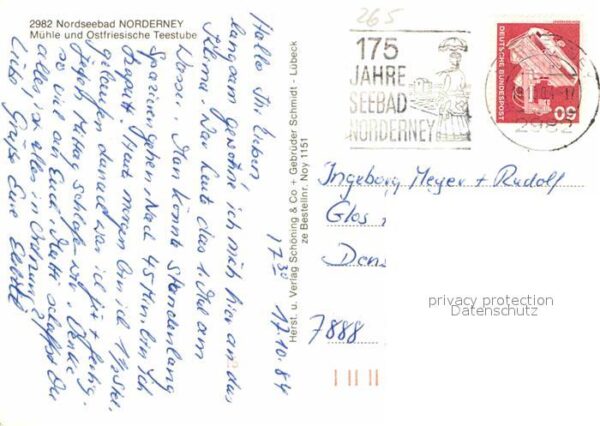 2982 Nordseebad NORDERNEY
Mühle und Ostfriesische Teestube
265
175
JAHRE
SEEBAD
NORDERNEY
DEUTSCHE BUNDESPOST
50
2982
17³⁰ 17.10.84
Hallo Ihr Lieben!
langsam gewöhne ich mich hier an das
Klima. War heute das 1. Mal am
Wasser. Man könnte stundenlang
Spazierengehen. Nach 45 Min. bin ich
kaputt. Heut morgen bin ich 1½ Std.
gelaufen danach war ich fix + fertig.
Jeden Mittag schlafe ich. Denke
so viel an Euch. Mutti schaffst Du
alles, ist alles in Ordnung?
Liebe Grüße Eure
Herst. u. Verlag Schöning & Co + Gebrüder Schmidt - Lübeck
ze Bestellnr. Noy 1151
Ingeborg Meyer + Rudolf
Glos
Den
7888
privacy protection
Datenschutz